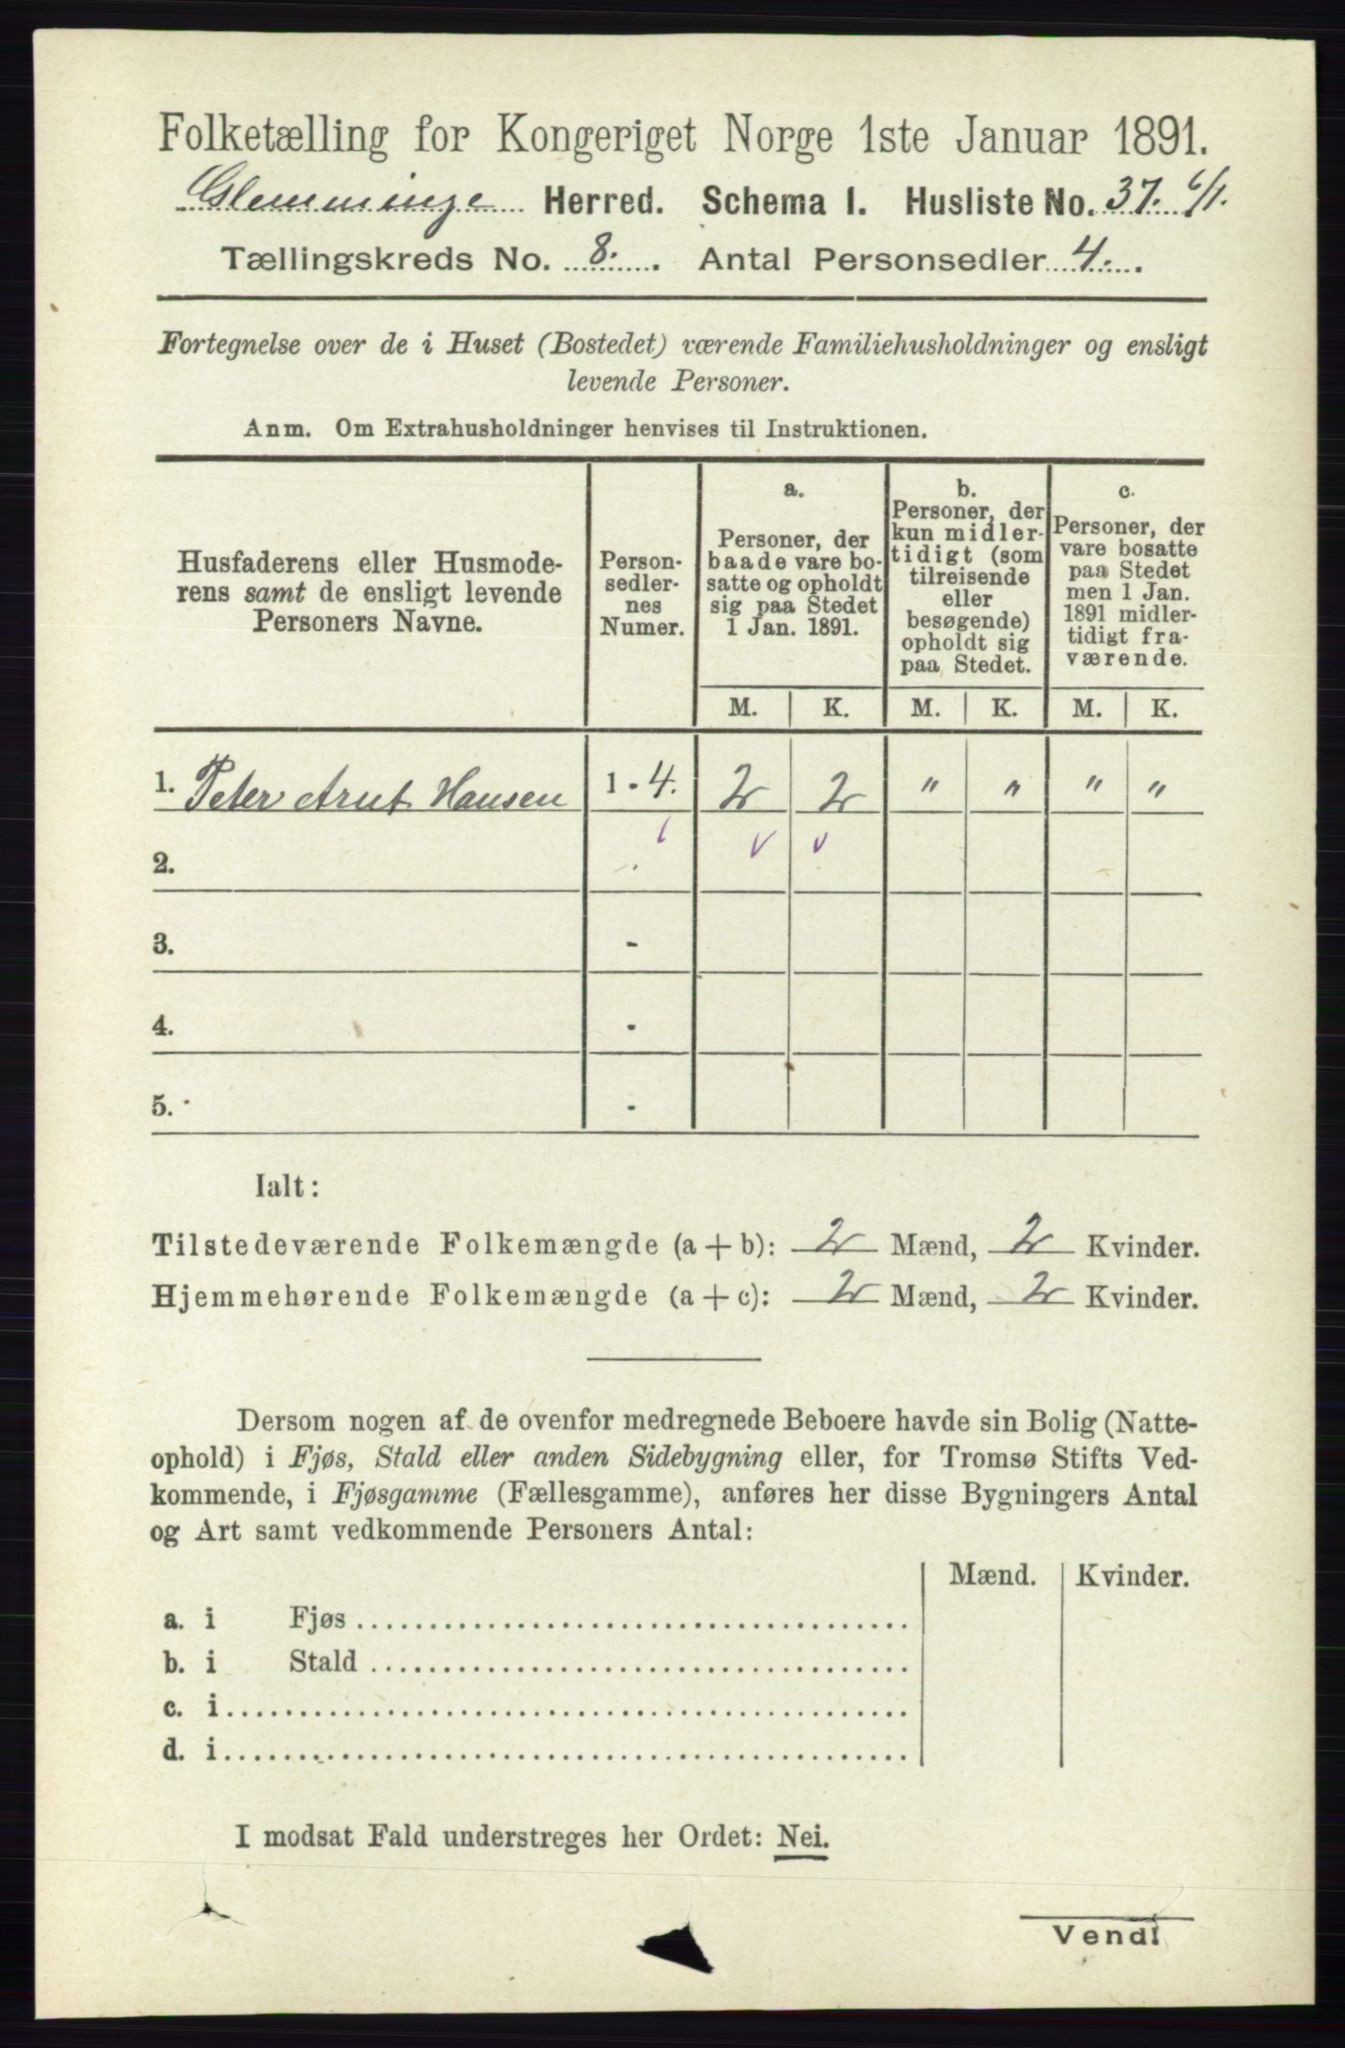 Folketælling for Kongeriget Norge 1ste Januar 1891.
Glemminge Herred. Schema I. Husliste No. 37. 6/1.
Tællingskreds No. 8. Antal Personsedler 4.
Fortegnelse over de i Huset (Bostedet) værende Familiehusholdninger og ensligt
levende Personer.
Anm. Om Extrahusholdninger henvises til Instruktionen.
Husfaderens eller Husmode-
rens samt de ensligt levende
Personers Navne.
Person-
sedler-
nes
Numer.
a.
Personer, der
baade vare bo-
satte og opholdt
sig paa Stedet
1 Jan. 1891.
b.
Personer, der
kun midler-
tidigt (som
tilreisende
eller
besøgende)
opholdt sig
paa Stedet.
c.
Personer, der
vare bosatte
paa Stedet
men 1 Jan.
1891 midler-
tidigt fra-
værende.
M. K. M. K. M. K.
1. Peter Arnt Hansen 1 - 4. 2 2 " " " "
2.
3. -
4. -
5. -
Ialt:
Tilstedeværende Folkemængde (a + b): 2 Mænd, 2 Kvinder.
Hjemmehørende Folkemængde (a + c): 2 Mænd, 2 Kvinder.
Dersom nogen af de ovenfor medregnede Beboere havde sin Bolig (Natte-
ophold) i Fjøs, Stald eller anden Sidebygning eller, for Tromsø Stifts Ved-
kommende, i Fjøsgamme (Fællesgamme), anføres her disse Bygningers Antal
og Art samt vedkommende Personers Antal:
Mænd. Kvinder.
a. i Fjøs
b. i Stald
c. i
d. i
I modsat Fald understreges her Ordet: Nei.
Vend!